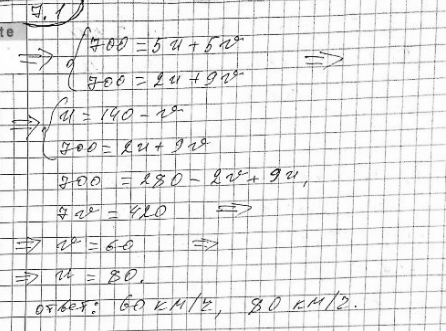 7.1
te
⇒ { 700 = 5u + 5v
700 = 2u + 9v ⇒
⇒ { u = 140 - v
700 = 2u + 9v
700 = 280 - 2v + 9u,
7v = 420 ⇒
⇒ v = 60 ⇒
⇒ u = 80.
ответ: 60 км/ч, 80 км/ч.